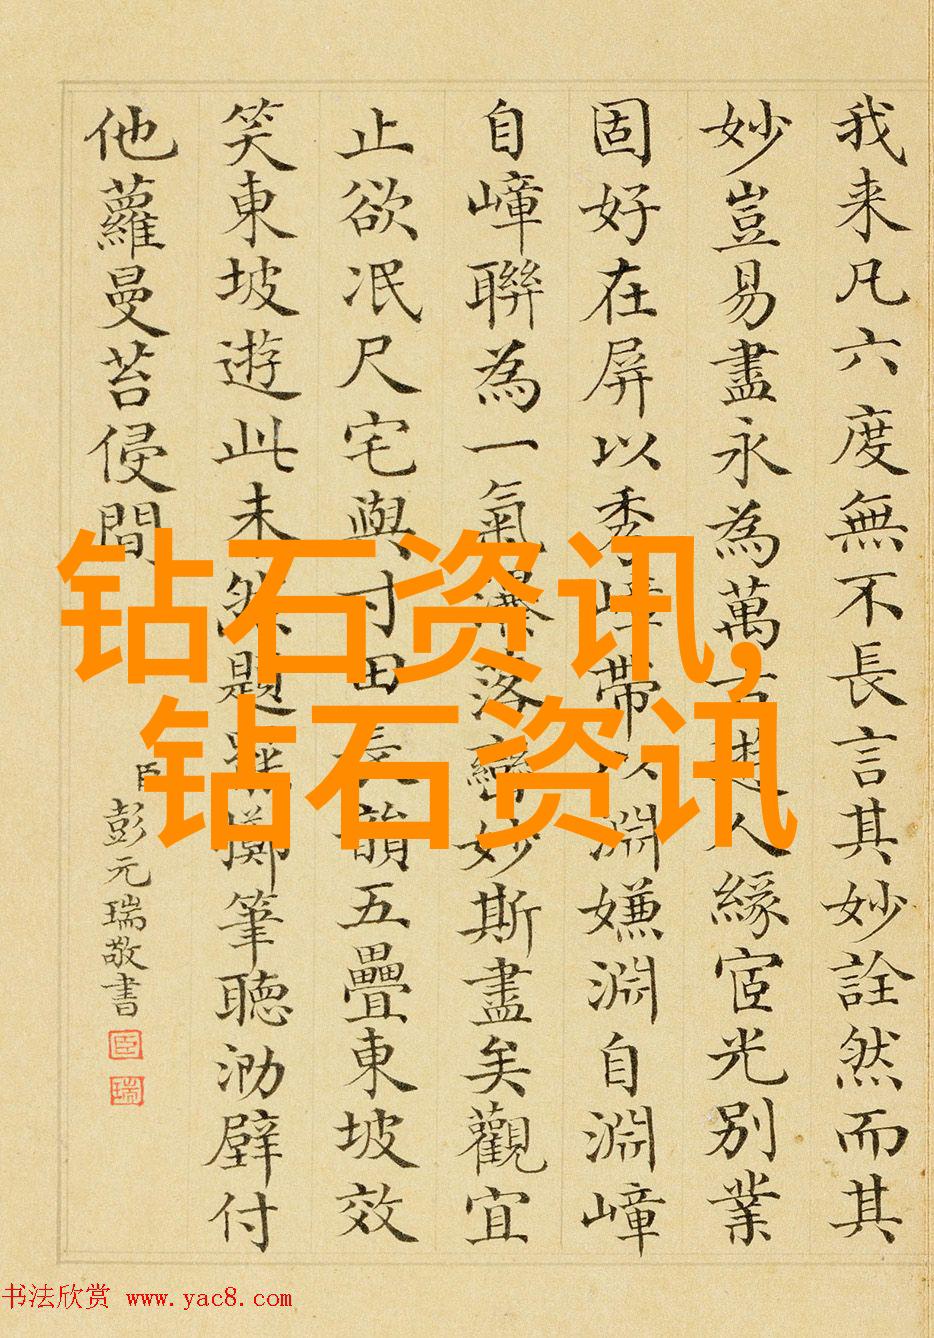 我来凡六度無不長言其妙詮然而其
妙豈易盡永為萬古人緣宧光別業
固好在屏以秀嶂帶以淵嫌淵自淵嶂
自嶂聯為一氣瀑落妙斯盡矣觀宜
止欲泯尺宅與寸田長韻五疊東坡效
笑東坡遊此未然題擲筆聽泐壁付
他蘿蔓苔侵間
臣彭元瑞敬書
臣
瑞
钻石资讯,
钻石资讯
书法欣赏 www.yac8.com